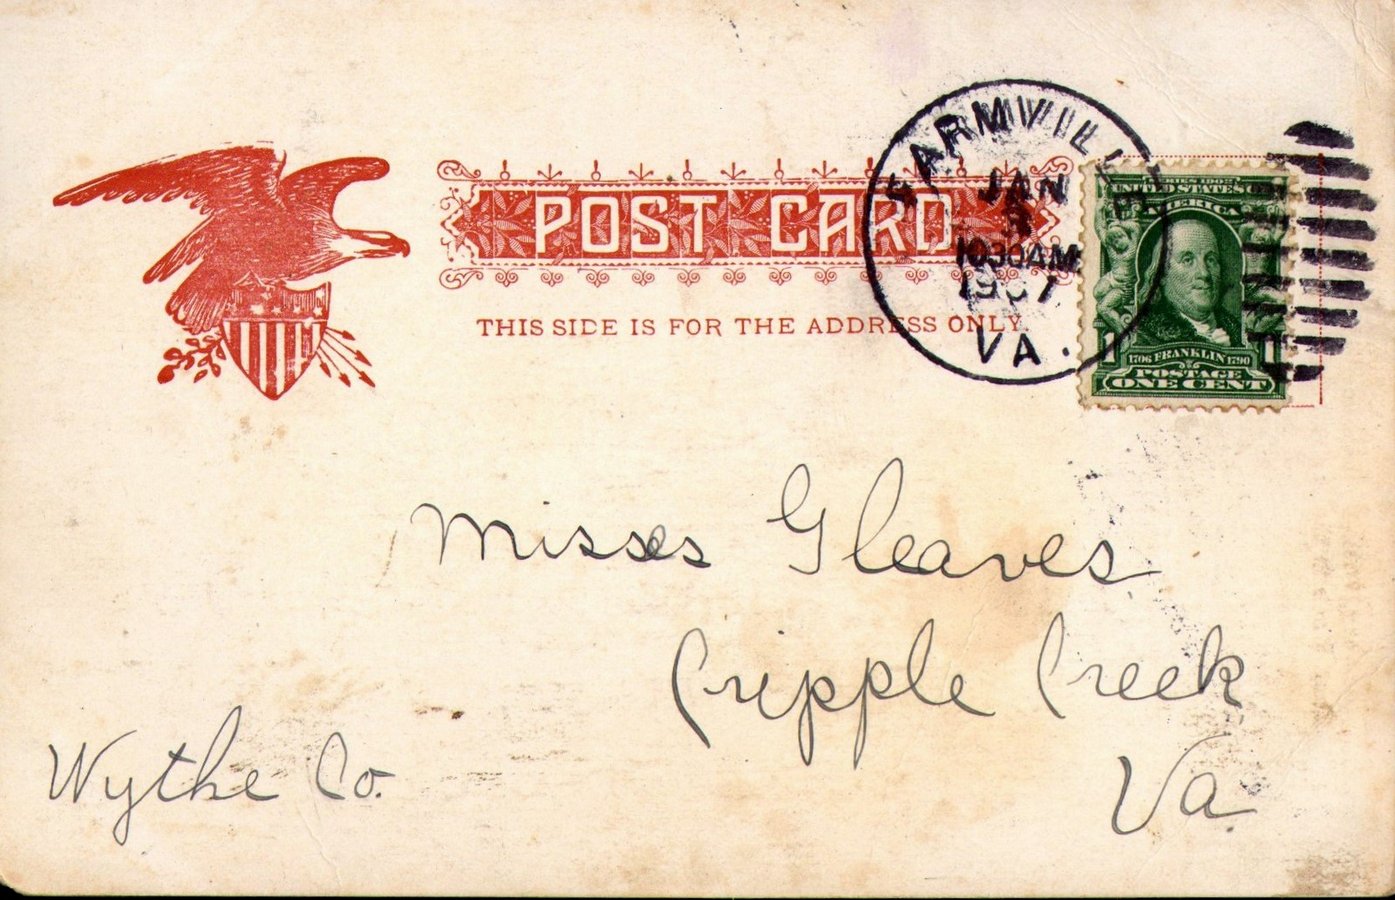 POST CARD
THIS SIDE IS FOR THE ADDRESS ONLY.
FARMVILLE
JAN
1030AM
1907
VA.
UNITED STATES OF
AMERICA
1 1
1706 FRANKLIN 1790
POSTAGE
ONE CENT
Misses Gleaves
Cripple Creek
Va
Wythe Co.